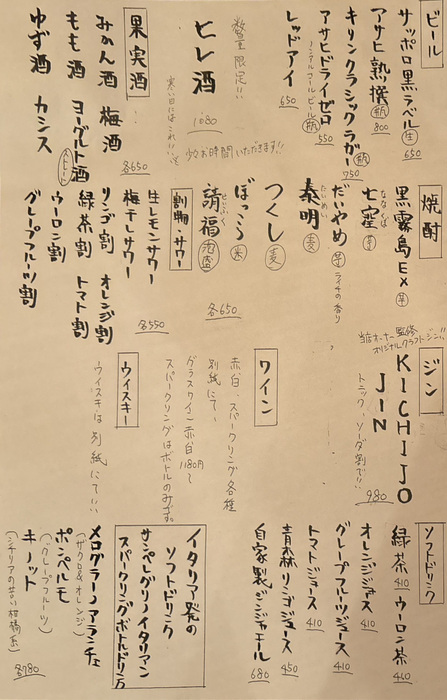 ビール
サッポロ黒ラベル(生)
650
アサヒ熟撰(瓶)
800
キリンクラシックラガー(瓶)
750
アサヒドライゼロ
ノンアルコールビール(瓶)
550
レッドアイ
650
数量限定!!
ヒレ酒
1080
寒い日にはこれ!!
少々お時間いただきます!!
果実酒
みかん酒 梅酒
もも酒 ヨーグルト酒
(ストレート)
ゆず酒 カシス
各650
焼酎
黒霧島EX(芋)
七窪(芋)
ななくぼ
だいやめ(芋)
ライチの香り
泰明(麦)
たいめい
つくし(麦)
ぼっこら(米)
請福(泡盛)
せいふく
各650
割物・サワー
生レモンサワー
梅干しサワー
各550
リンゴ割 オレンジ割
緑茶割 トマト割
ウーロン割
グレープフルーツ割
ジン
当店オーナー監修
オリジナルクラフトジン!!
KICHIJO
JIN
トニック、ソーダ割で!!
980
ワイン
赤白、スパークリング各種
別紙にて、
グラスワイン赤白 1180円〜
スパークリングはボトルのみです。
ウイスキー
ウイスキは別紙にて!!
ソフトドリンク
緑茶 410 ウーロン茶 410
オレンジジュース 410
グレープフルーツジュース 410
トマトジュース 410
青森リンゴジュース 450
自家製ジンジャエール 680
イタリア発の
ソフトドリンク
サンペレグリノイタリアン
スパークリングボトルドリンク
メログラーノアランチェ
(ザクロ&オレンジ)
ポンペルモ
(グレープフルーツ)
キノット
(シチリアの苦い柑橘系)
各780